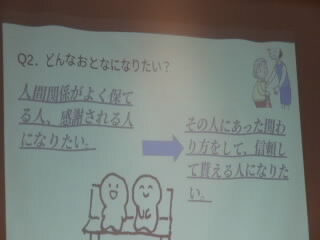 Q2．どんなおとなになりたい？
人間関係がよく保て
る人、感謝される人
になりたい。
その人にあった関わ
り方をして、信頼し
て貰える人になりた
い。